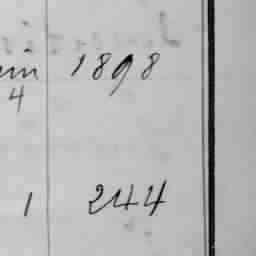 1898
4
1 244